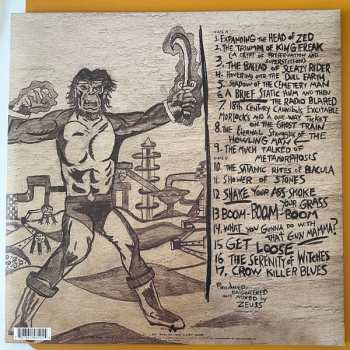 SIDE A
1. EXPANDING THE HEAD OF ZED
2. THE TRIUMPH OF KING FREAK
(A CRYPT OF PRESERVATION AND
SUPERSTITION)
3. THE BALLAD OF SLEAZY RIDER
4. HOVERING OVER THE DULL EARTH
5. SHADOW OF THE CEMETERY MAN
6. A BRIEF STATIC HUM AND THEN
THE RADIO BLARED
7. 18th CENTURY CANNIBALS, EXCITABLE
MORLOCKS AND A ONE-WAY TICKET
ON THE GHOST TRAIN
8. THE ETERNAL STRUGGLES OF THE
HOWLING MAN
9. THE MUCH TALKED OF
METAMORPHOSIS
10. THE SATANIC RITES OF BLACULA
11. SHOWER OF STONES
12. SHAKE YOUR ASS-SMOKE
YOUR GRASS
13 BOOM-BOOM-BOOM
14. WHAT YOU GONNA DO WITH
THAT GUN MAMMA?
15 GET LOOSE
16 THE SERENITY OF WITCHES
17. CROW KILLER BLUES
PRODUCED,
ENGINEERED
AND MIXED by
ZEUSS